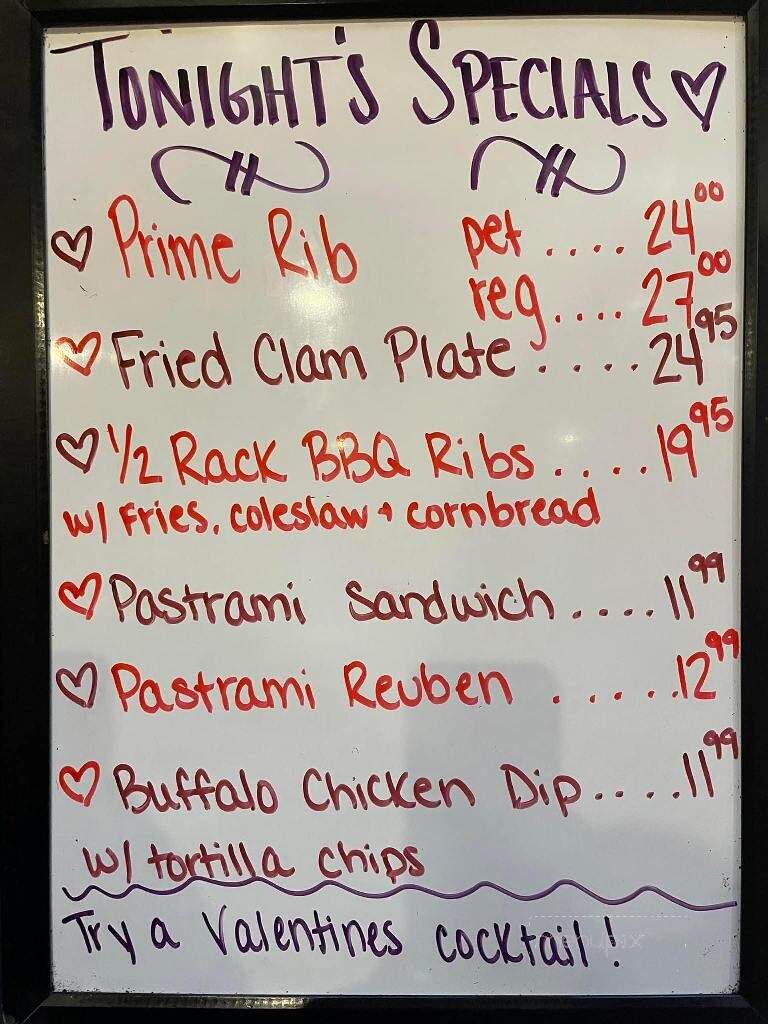 TONIGHT'S SPECIALS
Prime Rib pet .... 24.00
reg .... 27.00
Fried Clam Plate ..... 24.95
1/2 Rack BBQ Ribs .... 19.95
w/ Fries, coleslaw + cornbread
Pastrami Sandwich .... 11.99
Pastrami Reuben ..... 12.99
Buffalo Chicken Dip .... 11.99
w/ tortilla chips
Try a Valentines cocktail!